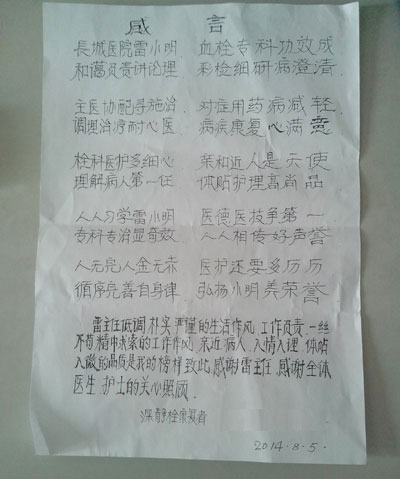 感 言
長城医院雷小明 血栓专科功效成
和蔼负责讲论理 彩检细研病澄清
主医协配寻施治 对症用药病减轻
调理治疗耐心医 病疾康复心满意
栓科医护多细心 亲和近人是天使
理解病人第一任 体贴护理高尚品
人人习学雷小明 医德医技争第一
专科专治显奇效 人人相传好声誉
人无完人金无赤 医护还要多历历
循序完善自身律 弘扬小明美荣誉
雷主任低调 朴实 严谨的生活作风 工作负责.一丝
不苟 精中求索的工作作风 亲近病人.入情入理.体贴
入微的品质是我的榜样 致此.感谢雷主任.感谢全体
医生.护士的关心照顾.
深静栓康复者
2014.8.5.